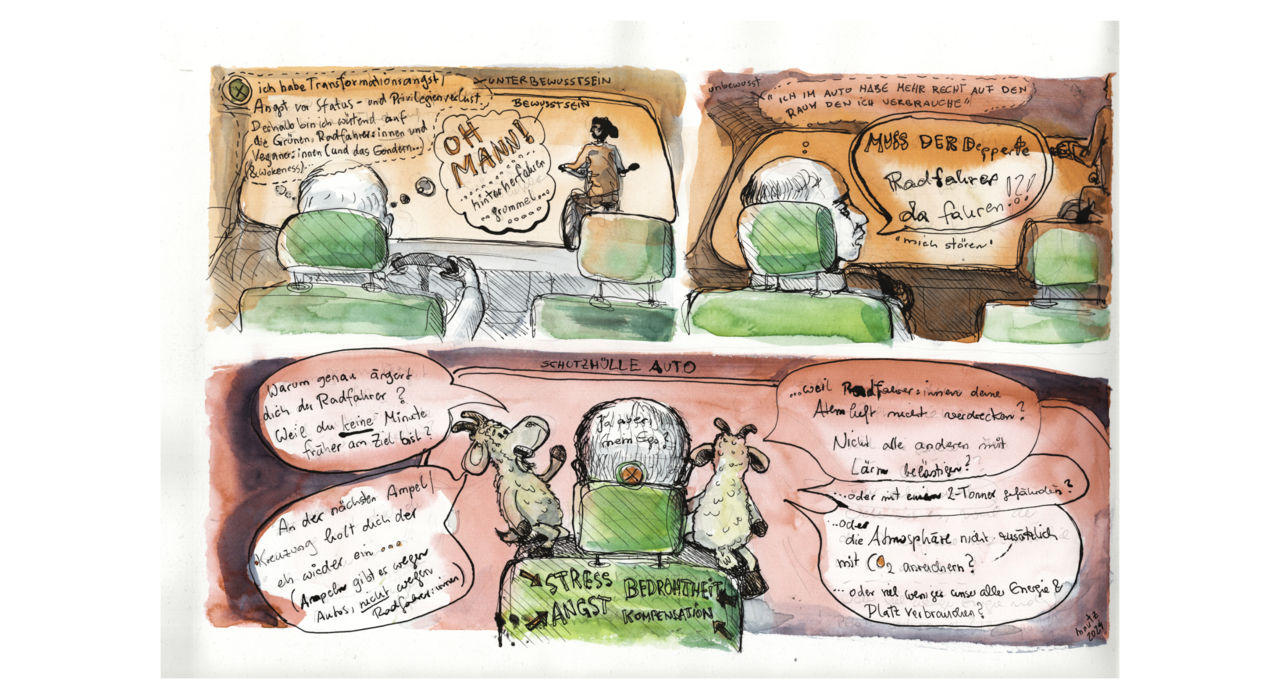 ich habe Transformationsangst/
Angst vor Status- und Privilegienverlust.
Deshalb bin ich wütend auf
die Grünen, Radfahrer:innen und
Veganer:innen (und das Gendern...
& wokeness).
UNTERBEWUSSTSEIN
BEWUSSTSEIN
OH
MANN!
hinterherfahren
..grummel...
unbewusst
"ICH IM AUTO HABE MEHR RECHT AUF DEN
RAUM DEN ICH VERBRAUCHE"
MUSS DER Depperte
Radfahrer
da fahren!?!
"mich stören"
SCHUTZHÜLLE AUTO
Warum genau ärgert
dich der Radfahrer?
Weil du keine Minute
früher am Ziel bist?
An der nächsten Ampel/
Kreuzung holt dich der
eh wieder ein...
(Ampeln gibt es wegen
Autos, nicht wegen
Radfahrer:innen)
Ja aber!
mein Ego?
...weil Radfahrer:innen deine
Atemluft nicht verdrecken?
Nicht alle anderen mit
Lärm belästigen?
...oder mit einem 2-Tonner gefährden?
...oder
die Atmosphäre nicht zusätzlich
mit CO2 anreichern?
...oder viel weniger unser aller Energie &
Platz verbrauchen?
STRESS
ANGST
BEDROHTHEIT
KOMPENSATION
2024